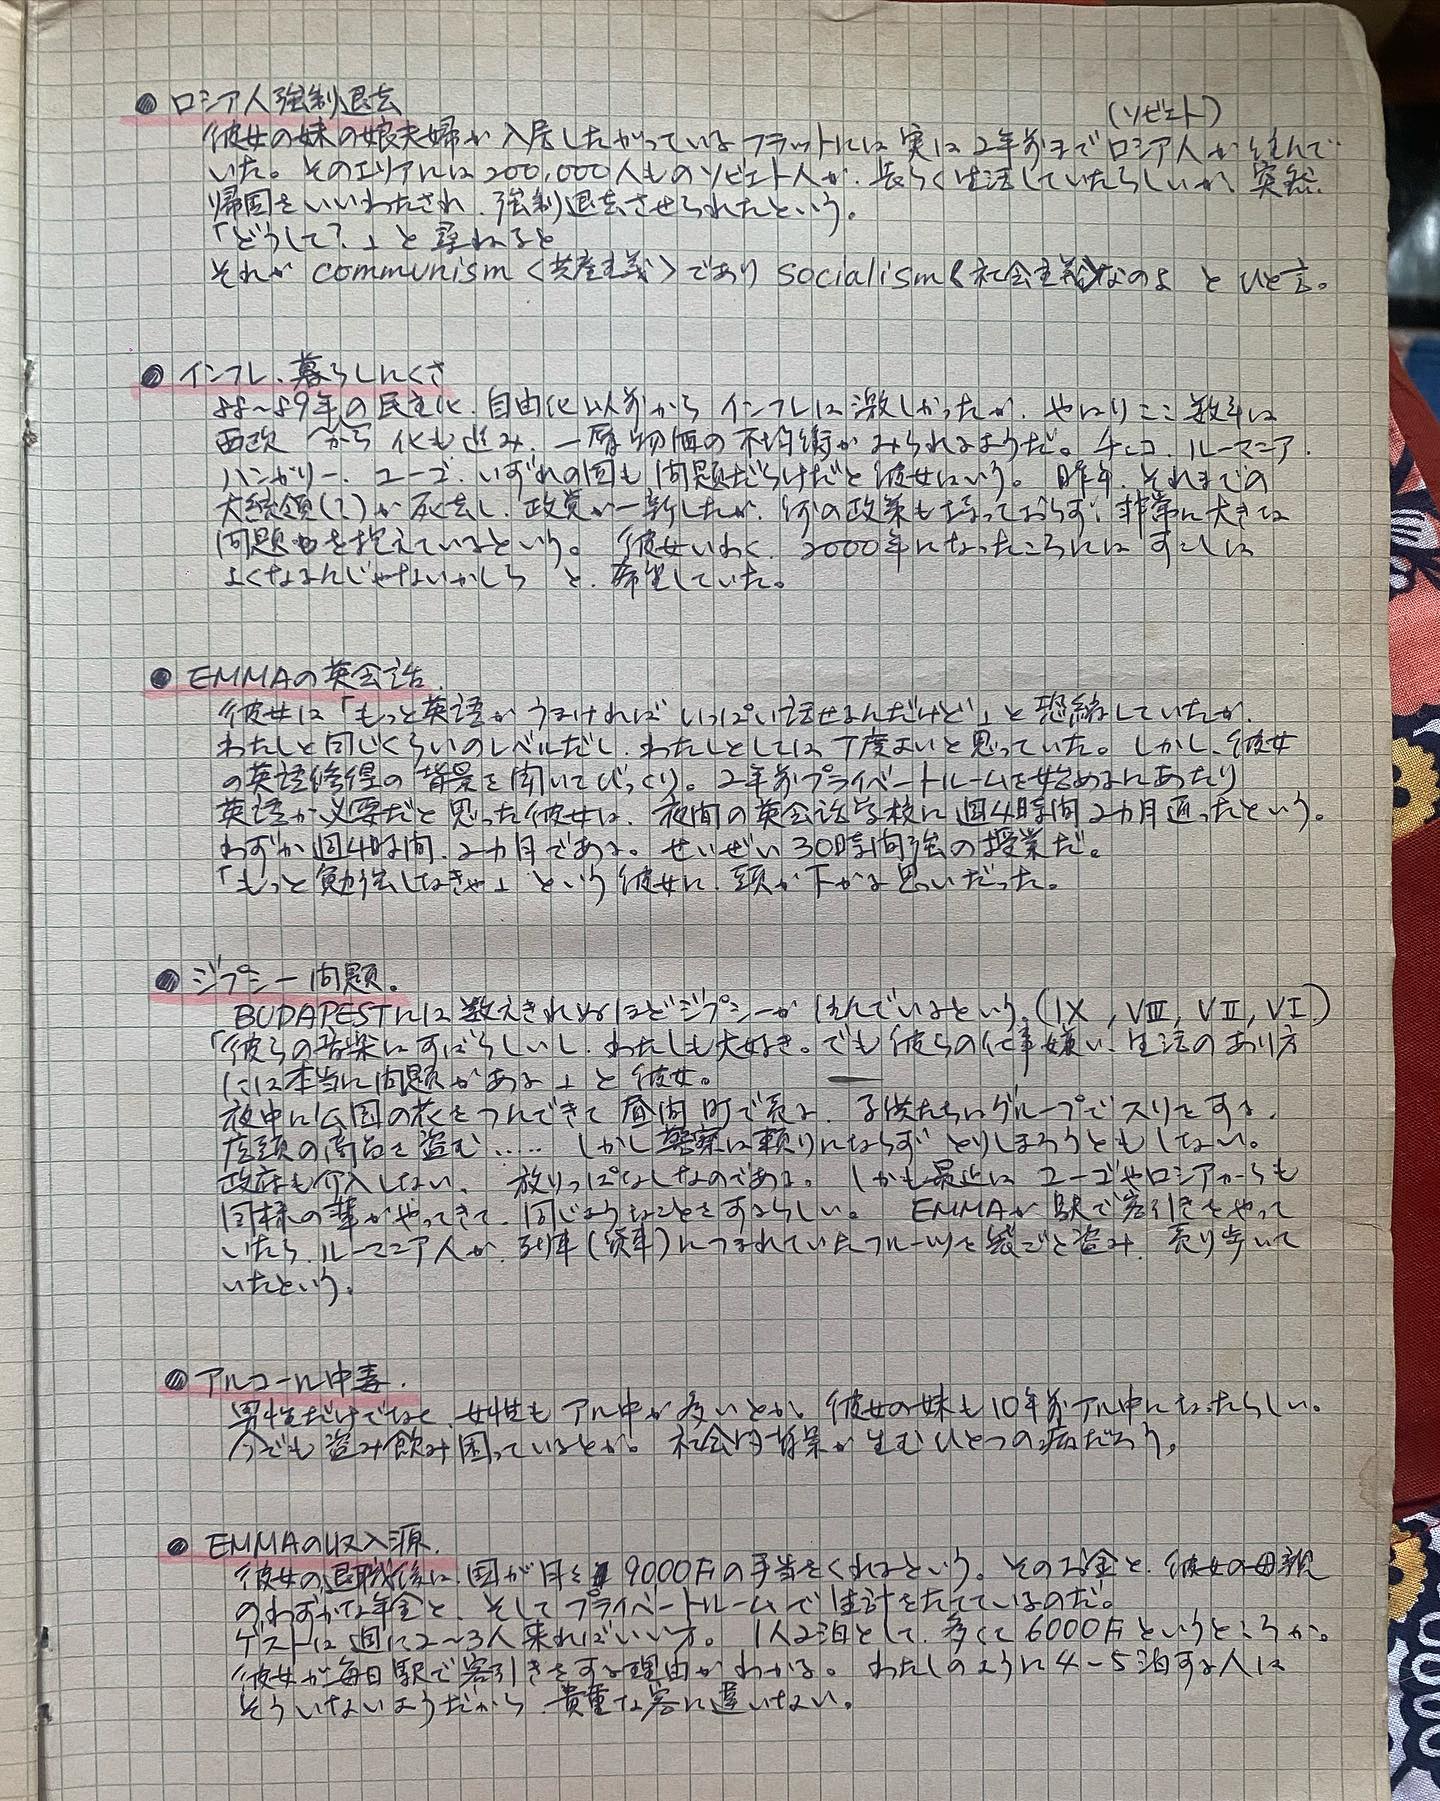 ● ロシア人強制退去
(ソビエト)
彼女の妹の娘夫婦が入居したがっているフラットには実は2年前までロシア人が住んで
いた。そのエリアには200,000人ものソビエト人が、長らく生活していたらしいが、突然
帰国をいいわたされ、強制退去させられたという。
「どうして?」と尋ねると
それが communism〈共産主義〉であり socialism〈社会主義〉なのよ とひと言。
● インフレ、暮らしにくさ
88〜89年の民主化、自由化以前からインフレは激しかったが、やはりここ数年は
西欧化も進み、一層物価の不均衡がみられるようだ。チェコ、ルーマニア、
ハンガリー、ユーゴ、いずれの国も問題だらけだと彼女はいう。昨年、それまでの
大統領(?)が死去し、政党が一新したが、何の政策も持っておらず、非常に大きな
問題を抱えているという。彼女いわく、2000年になったころにはすこしは
よくなるんじゃないかしら と、希望していた。
● EMMAの英会話
彼女は「もっと英語がうまければいっぱい話せるんだけど」と恐縮していたが、
わたしと同じくらいのレベルだし、わたしとしては丁度よいと思っていた。しかし、彼女
の英語修得の背景を聞いてびっくり。2年前プライベートルームを始めるにあたり
英語が必要だと思った彼女は、夜間の英会話学校に週4時間2カ月通ったという。
わずか週4時間、2カ月である。せいぜい30時間強の授業だ。
「もっと勉強しなきゃ」という彼女に、頭が下がる思いだった。
● ジプシー問題。
BUDAPESTには数えきれぬほどジプシーが住んでいるという。(IX, VIII, VII, VI)
「彼らの音楽はすばらしいし、わたしも大好き。でも彼らの仕事嫌い、生活のあり方
には本当に問題がある」と彼女。
夜中に公園の花をつんできて昼間町で売る、子供たちはグループでスリをする、
店頭の商品を盗む…… しかし警察は頼りにならずとりしまろうともしない。
政府も介入しない、放りっぱなしなのである。しかも最近はユーゴやロシアからも
同様の輩がやってきて、同じようなことをするらしい。EMMAが駅で客引きをやって
いたら、ルーマニア人が、列車(貨車)につまれていたフルーツを袋ごと盗み、売り歩いて
いたという。
● アルコール中毒.
男性だけでなく、女性もアル中が多いとか。彼女の妹も10年前アル中になったらしい。
今でも盗み飲み困っているとか。社会的背景が生むひとつの病だろう。
● EMMAの収入源.
彼女の退職後は、国が月を9000Ftの手当をくれるという。そのお金と、彼女の母親
のわずかな年金と、そしてプライベートルームで生計をたてているのだ。
ゲストは週に2〜3人来ればいい方。1人2泊として、多くて6000Ftというところか。
彼女が毎日駅で客引きをする理由がわかる。わたしのように4〜5泊する人は
そういないようだから、貴重な客に違いない。